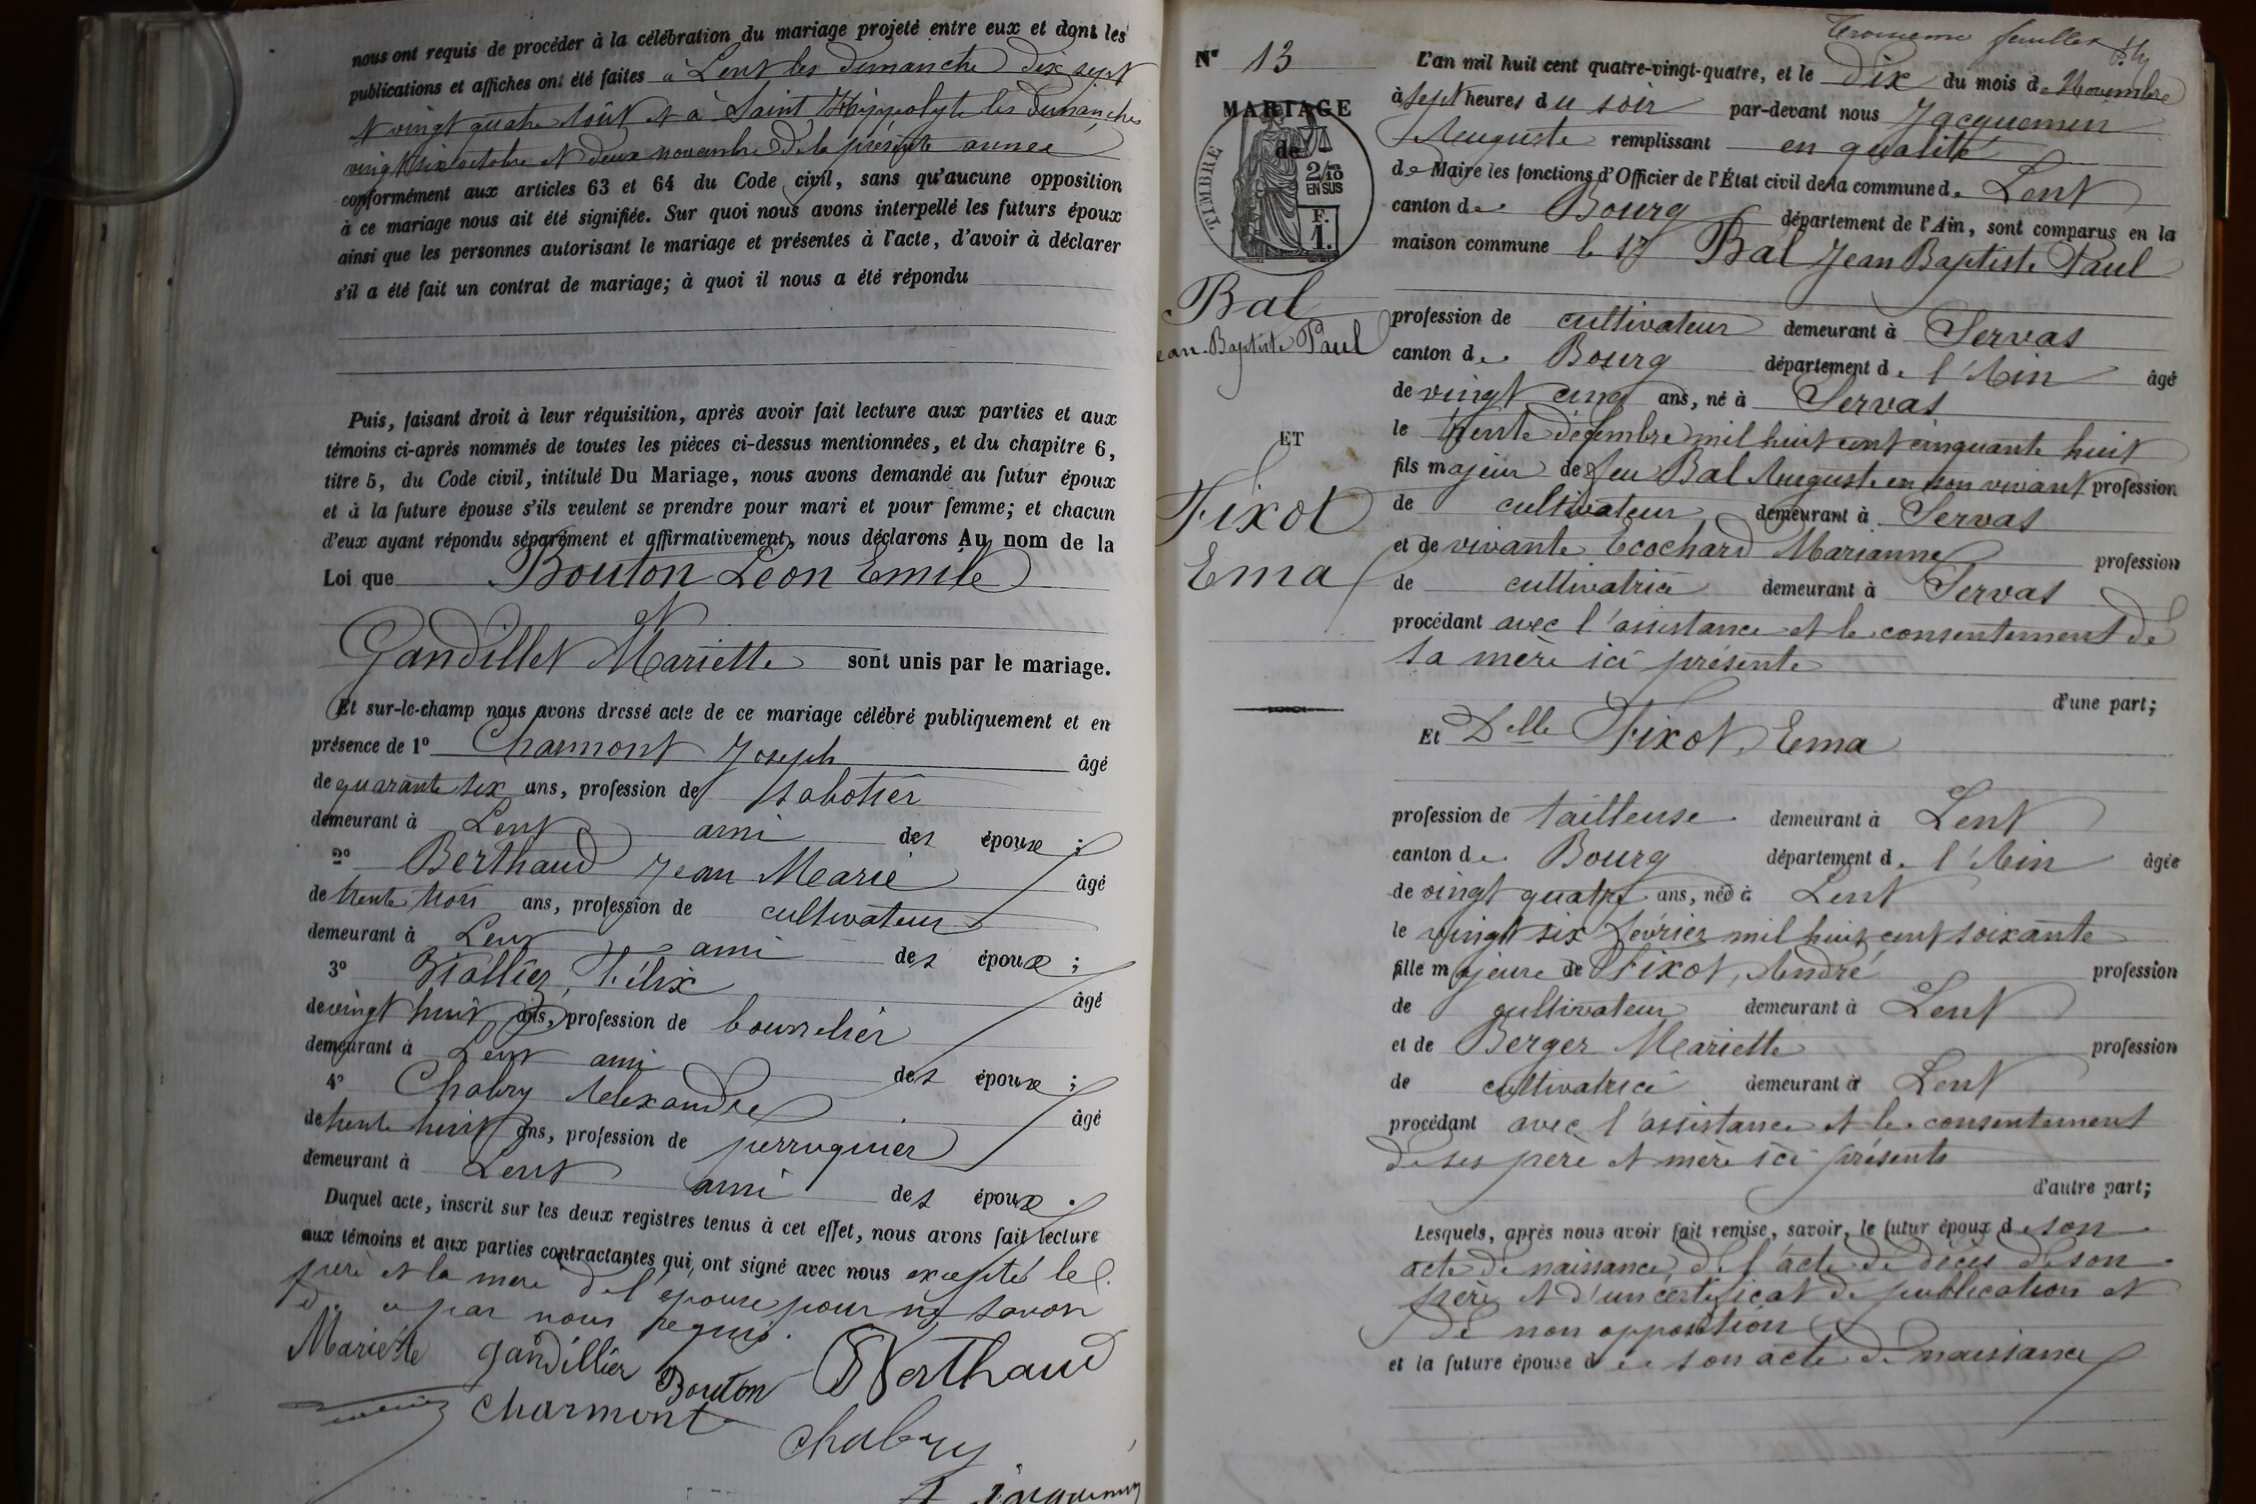 nous ont requis de procéder à la célébration du mariage projeté entre eux et dont les
publications et affiches ont été faites à Lent les dimanche dix sept
et vingt quatre août et à Saint Hippolyte les Dimanches
vingt six octobre et deux novembre de la présente année
conformément aux articles 63 et 64 du Code civil, sans qu'aucune opposition
à ce mariage nous ait été signifiée. Sur quoi nous avons interpellé les futurs époux
ainsi que les personnes autorisant le mariage et présentes à l'acte, d'avoir à déclarer
s'il a été fait un contrat de mariage; à quoi il nous a été répondu
Puis, faisant droit à leur réquisition, après avoir fait lecture aux parties et aux
témoins ci-après nommés de toutes les pièces ci-dessus mentionnées, et du chapitre 6,
titre 5, du Code civil, intitulé Du Mariage, nous avons demandé au futur époux
et à la future épouse s'ils veulent se prendre pour mari et pour femme; et chacun
d'eux ayant répondu séparément et affirmativement, nous déclarons Au nom de la
Loi que Bouton Léon Emile
et
Gandillet Mariette sont unis par le mariage.
Et sur-le-champ nous avons dressé acte de ce mariage célébré publiquement et en
présence de 1° Charmont Joseph âgé
de quarante six ans, profession de sabotier
demeurant à Lent ami des époux ;
2° Berthaud Jean Marie âgé
de trente trois ans, profession de cultivateur
demeurant à Lent ami des époux ;
3° Viallier, Félix âgé
de vingt huit ans, profession de bourrelier
demeurant à Lent ami des époux ;
4° Chabry Alexandre âgé
de trente huit ans, profession de perruquier
demeurant à Lent ami des époux .
Duquel acte, inscrit sur les deux registres tenus à cet effet, nous avons fait lecture
aux témoins et aux parties contractantes qui ont signé avec nous exceptés le
père et la mère de l'épouse pour ne savoir
par nous requis.
Mariette gandillier Bouton Berthaud
Charmont
Chabry
Jacquemin
Troisième feuillet
N° 13
MARIAGE
de
TIMBRE
2/10
EN SUS
F.
1.
Bal
Jean-Baptiste Paul
ET
Fixot
Ema
L'an mil huit cent quatre-vingt-quatre, et le dix du mois de Novembre
à sept heures du soir par-devant nous Jacquemin
Auguste remplissant en qualité
de Maire les fonctions d'Officier de l'État civil de la commune de Lent
canton de Bourg département de l'Ain, sont comparus en la
maison commune le Sr Bal Jean Baptiste Paul
profession de cultivateur demeurant à Servas
canton de Bourg département de l'Ain âgé
de vingt cinq ans, né à Servas
le trente décembre mil huit cent cinquante huit
fils majeur de feu Bal Auguste en son vivant profession
de cultivateur demeurant à Servas
et de vivante Ecochard Marianne profession
de cultivatrice demeurant à Servas
procédant avec l'assistance et le consentement de
sa mère ici présente
d'une part;
Et Delle Fixot, Ema
profession de tailleuse demeurant à Lent
canton de Bourg département de l'Ain âgée
de vingt quatre ans, née à Lent
le vingt six Février mil huit cent soixante
fille majeure de Fixot, André profession
de cultivateur demeurant à Lent
et de Berger Mariette profession
de cultivatrice demeurant à Lent
procédant avec l'assistance et le consentement
de ses père et mère ici présents
d'autre part;
Lesquels, après nous avoir fait remise, savoir, le futur époux de son
acte de naissance, de l'acte de décès de son
père et d'un certificat de publication et
de non opposition
et la future épouse de son acte de naissance